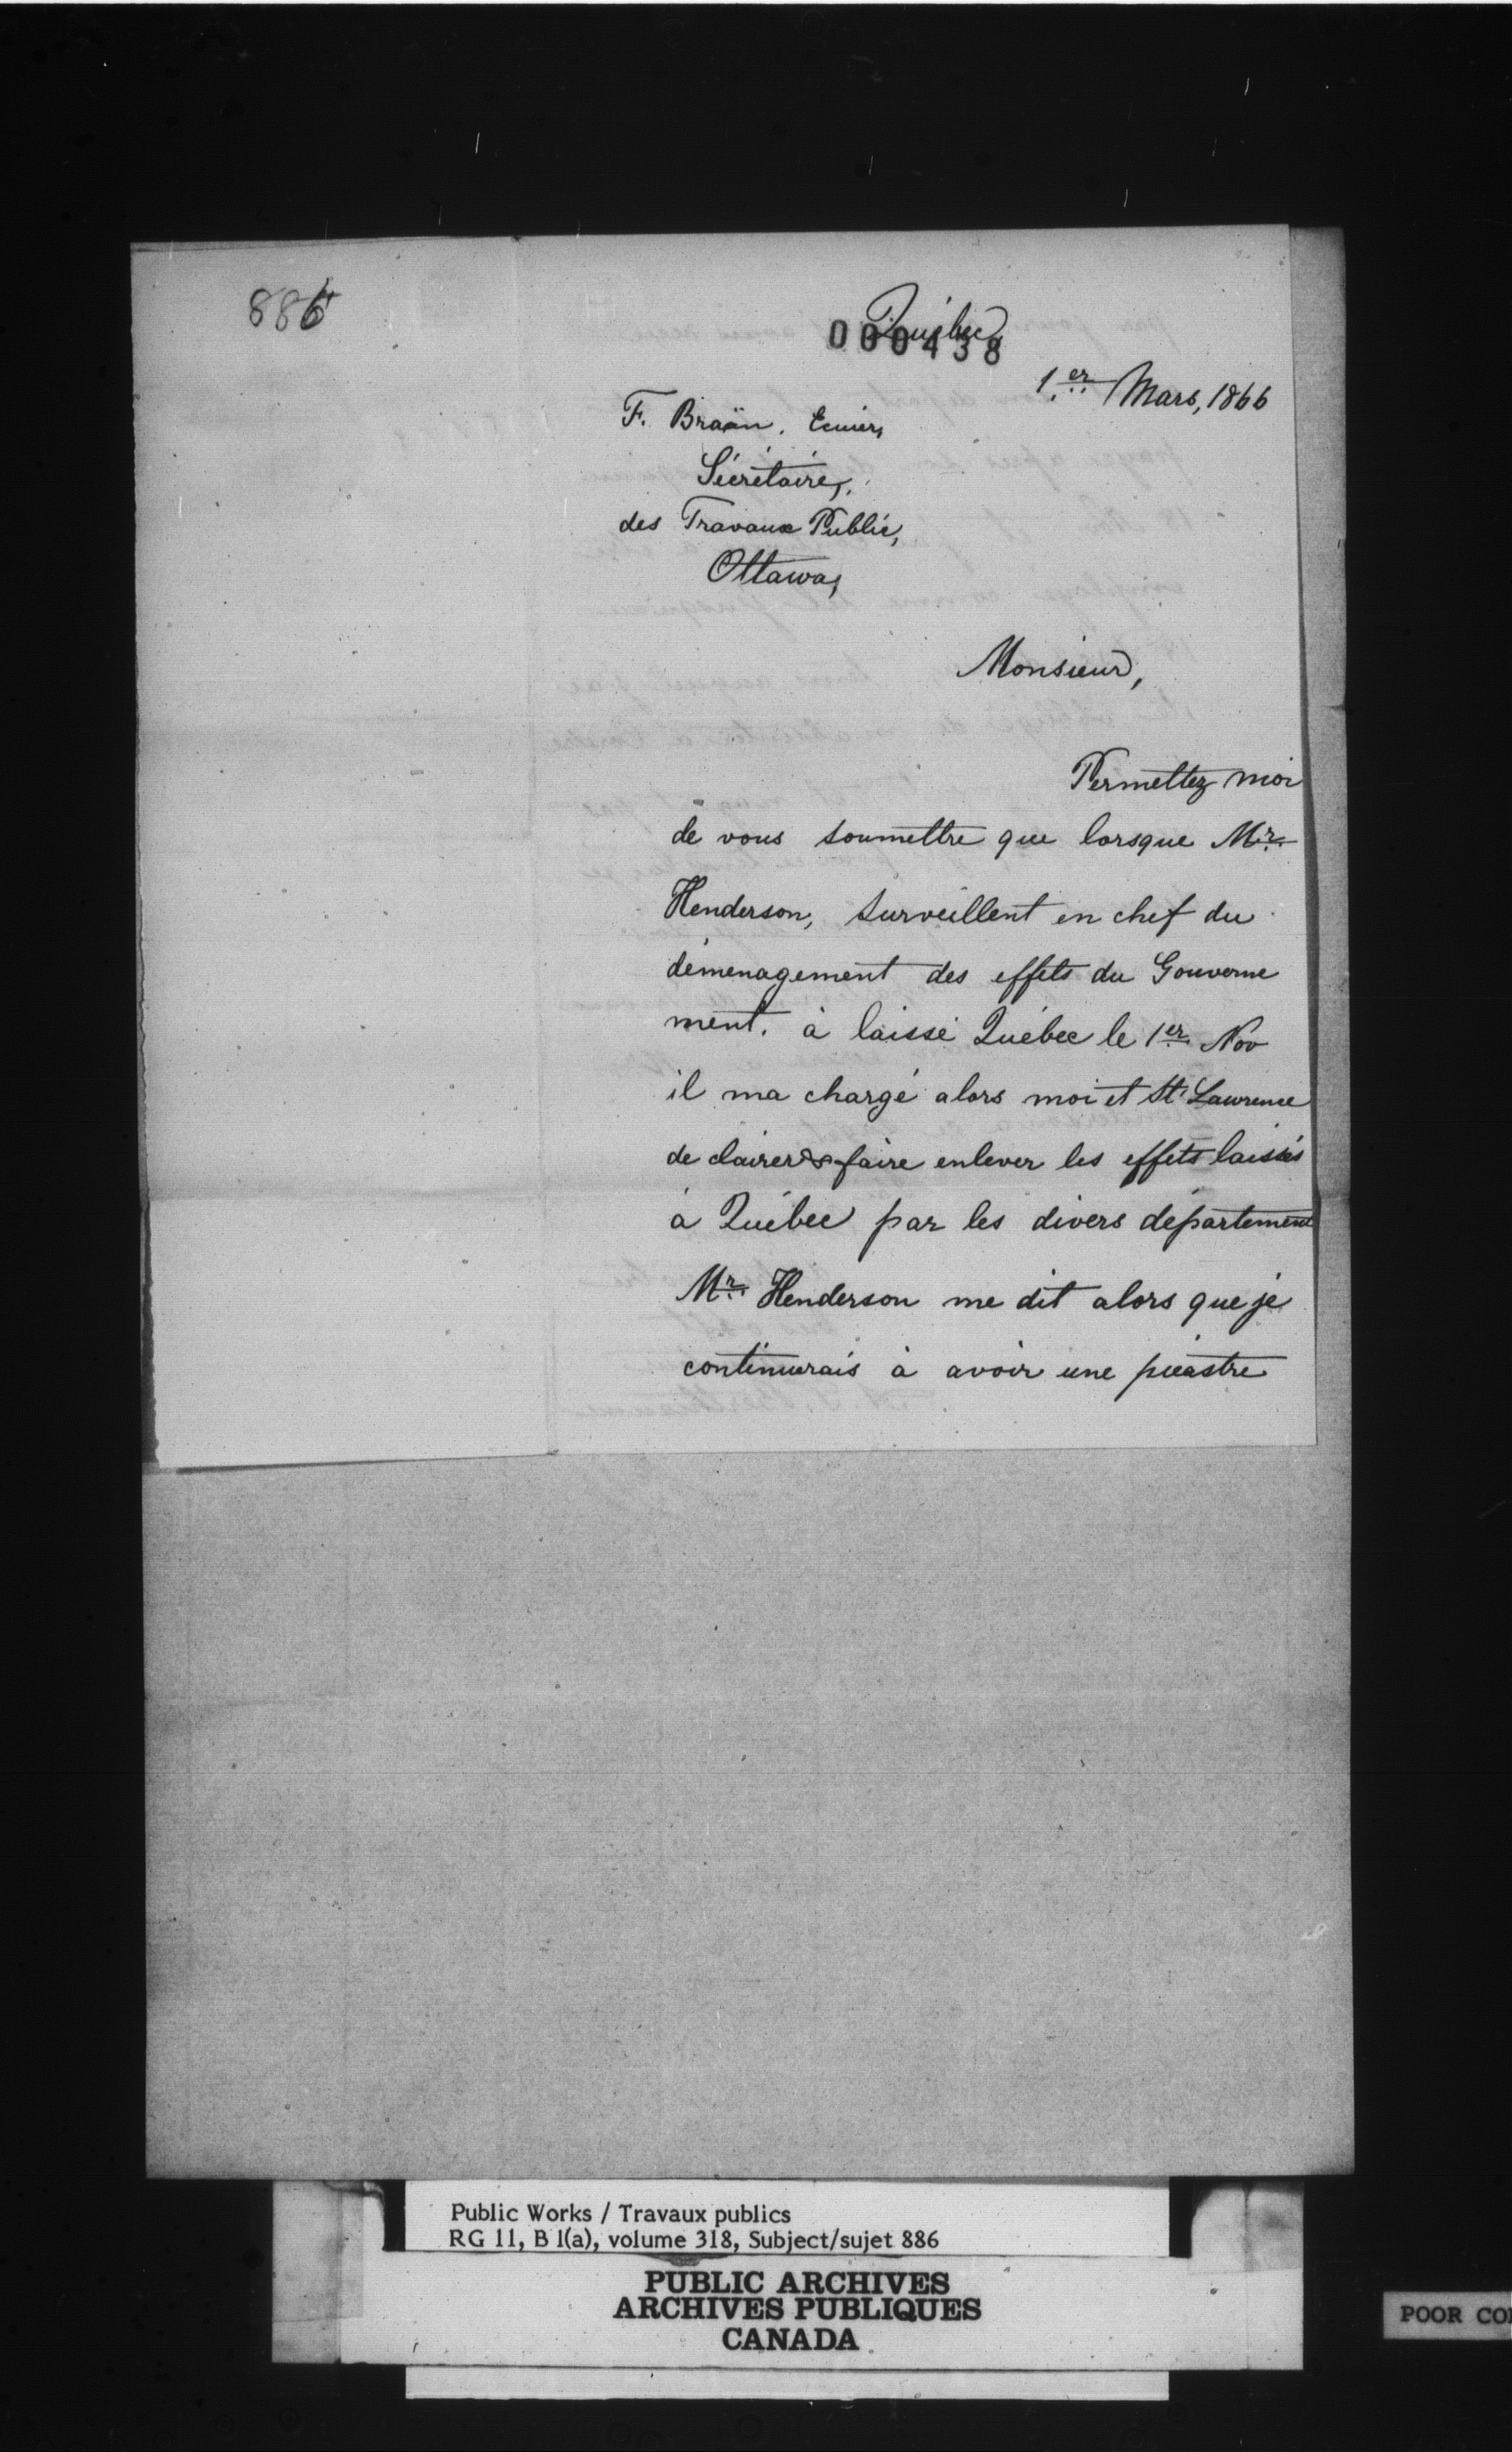 886
Québec,
000438
1er Mars, 1866
F. Braün, Ecuier,
Sécrétaire,
des Travaux Public,
Ottawa,
Monsieur,
Permettez moi
de vous soumettre que lorsque Mr.
Henderson, surveillent en chef du
déménagement des effets du Gouverne
ment. à laissé Québec le 1er. Nov
il ma chargé alors moi et St Lawrence
de clairer & faire enlever les effets laissés
à Québec par les divers département
Mr. Henderson me dit alors que je
continuerais à avoir une pieastre
Public Works / Travaux publics
RG 11, B 1(a), volume 318, Subject/sujet 886
PUBLIC ARCHIVES
ARCHIVES PUBLIQUES
CANADA
POOR